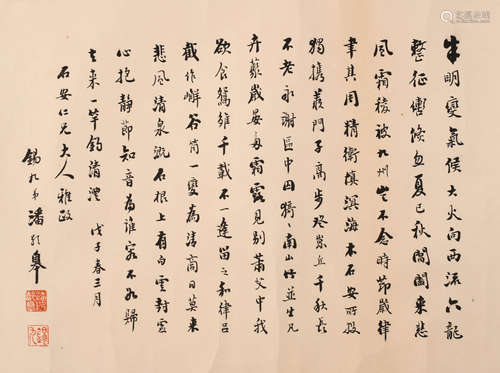 朱明變氣候大火向西流六龍
整征轡倏忽夏已秋閶闔來悲
風霜後被九州豈不念時節歲律
聿其周精衛填溟海木石安所投
獨携羨門子高步登崇丘千秋長
不老永謝區中囚猗猗南山竹並生凡
卉叢歲晏每霜露見別蕭艾中我
欲食鴛雛千載不一逢留之和律呂
截作嶰谷筒一變為清商日莫來
悲風清泉流石根上有白雲封靈
心抱静節知音為誰容不如歸
去來一竿釣清澧 戊子春三月
石安仁兄大人雅政
錫九弟潘